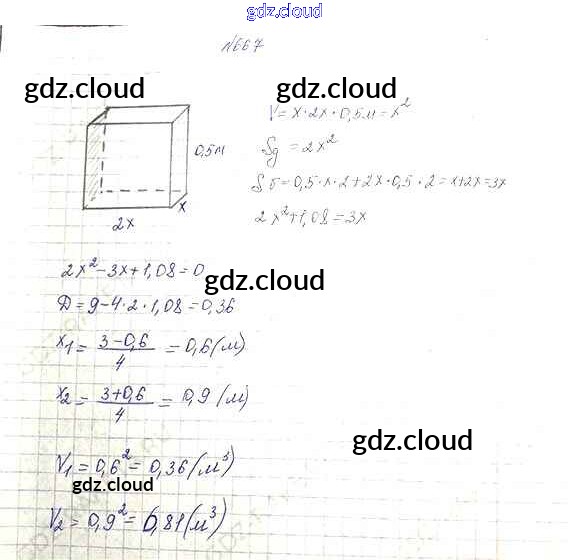 gdz.cloud
N667
gdz.cloud
gdz.cloud
V = x·2x·0,5м = x²
0,5м
Sд = 2x²
Sб = 0,5·x·2+2x·0,5·2 = x+2x = 3x
x
2x
2x²+1,08 = 3x
2x² - 3x + 1,08 = 0
gdz.cloud
Д = 9-4·2·1,08 = 0,36
x₁ = (3-0,6)/4 = 0,6 (м)
x₂ = (3+0,6)/4 = 0,9 (м)
gdz.cloud
V₁ = 0,6² = 0,36 (м³)
gdz.cloud
V₂ = 0,9² = 0,81 (м³)